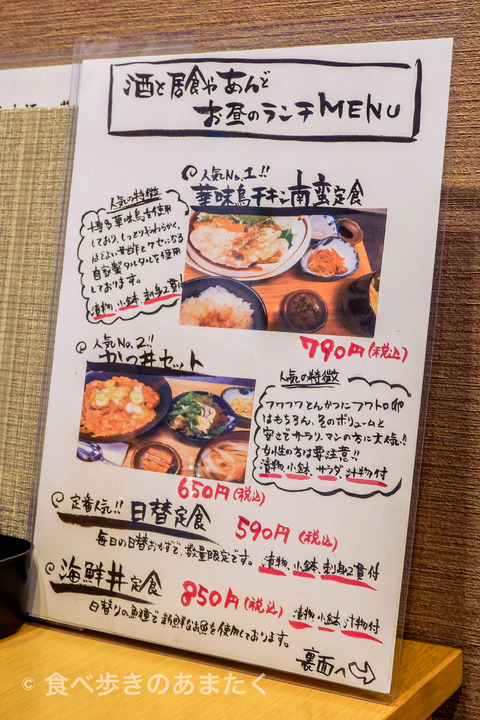 酒と居食やあんど
お昼のランチMENU
人気No.1!!
華味鳥チキン南蛮定食
人気の特徴
博多華味鳥を使用
しており、しっとりやわらかく、
ほどよい甘酢とクセになる
自家製タルタルを使用
しております。
漬物、小鉢、刺身2貫付
790円(税込)
人気No.2!!
かつ丼セット
人気の特徴
フワフワとんかつにフワトロ卵
はもちろん、そのボリュームと
安さでサラリーマンの方に大人気!!
女性の方は要注意!!
漬物、小鉢、サラダ、汁物付
650円(税込)
定番人気!!日替定食 590円(税込)
毎日の日替おかずで、数量限定です。漬物、小鉢、刺身2貫付
海鮮丼定食 850円(税込)
日替りの魚種で新鮮なお魚を使用しております。漬物、小鉢、汁物付
裏面へ
© 食べ歩きのあまたく